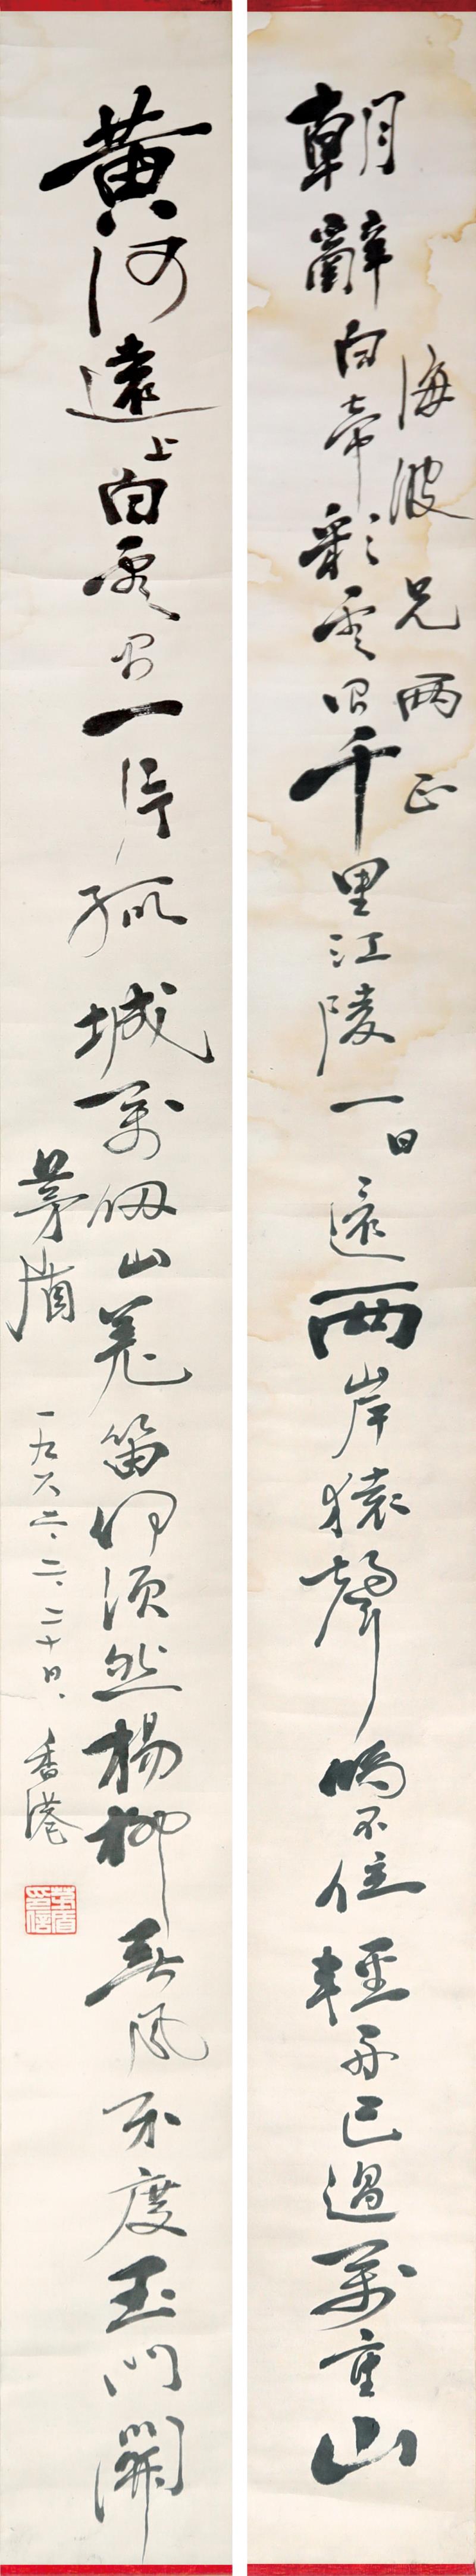 海波兄兩正
朝辭白帝彩雲間千里江陵一日還兩岸猿聲啼不住輕舟已過萬重山
黃河遠上白雲間一片孤城萬仞山羌笛何須怨楊柳春風不度玉門關
茅盾 一九六二、二、二十日、香港
茅盾印信